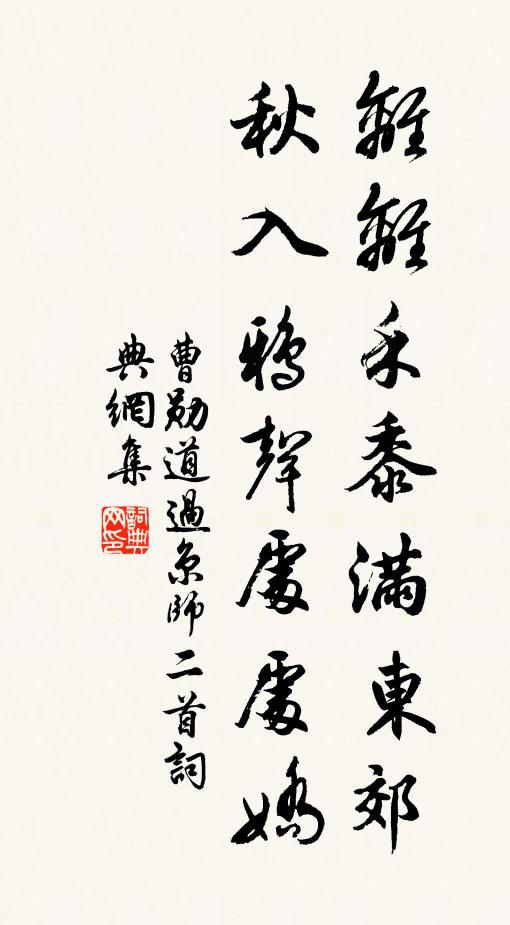 離離禾黍滿東郊
秋入鴉聲處處嬌
曹勛道過京師二首詞
典網集
詞典網印